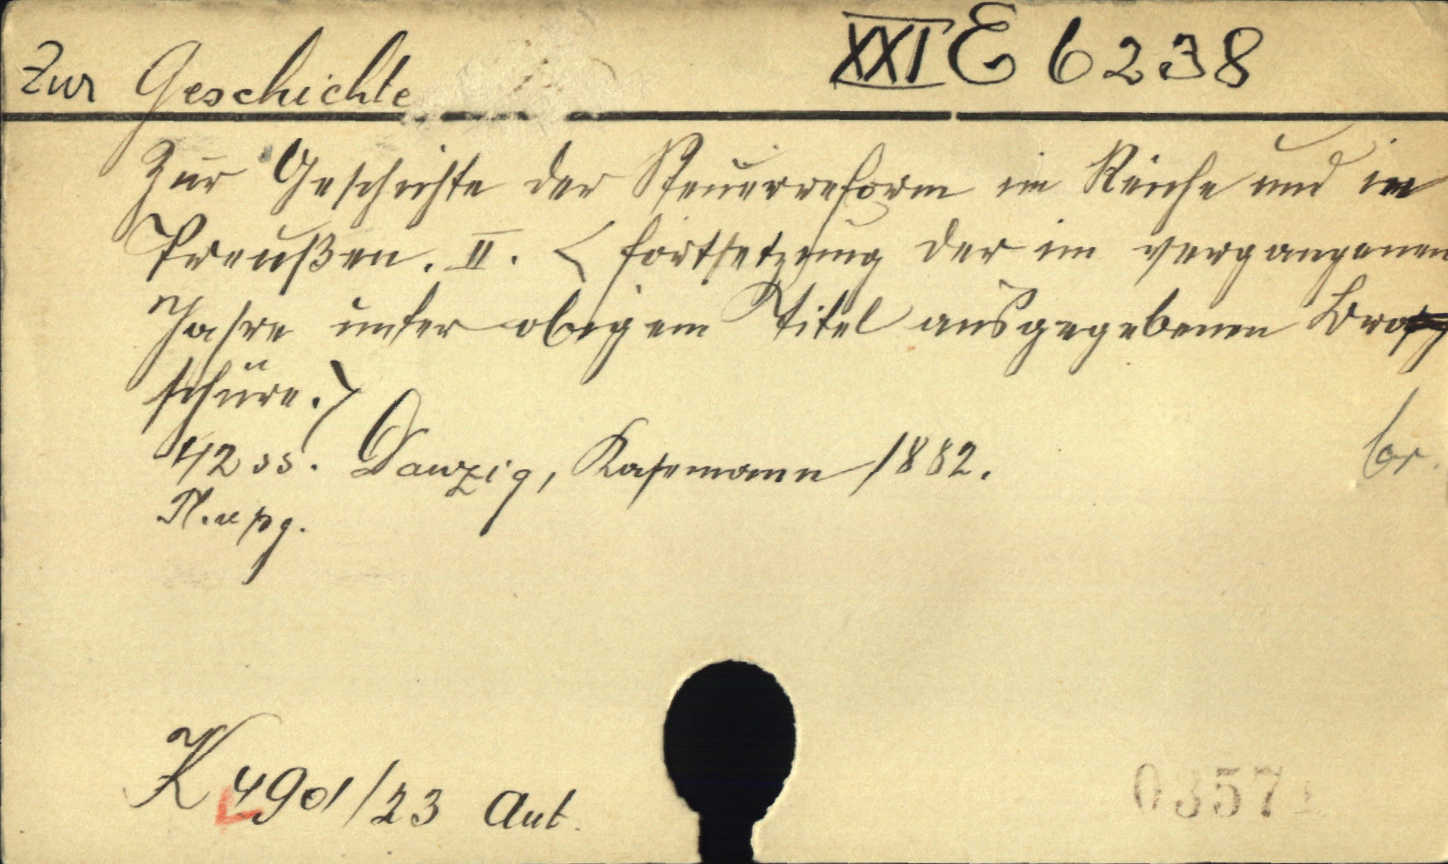 Zur Geschichte XXI E 6238
Zur Geschichte der Steuerreform im Reiche und in
Preußen. II. < Fortsetzung der im vergangenen
Jahre unter obigem Titel ausgegebenen Bro
schüre.>
42 ss. Danzig, Kafemann 1882. br.
K 49d/23 Aut.
03571